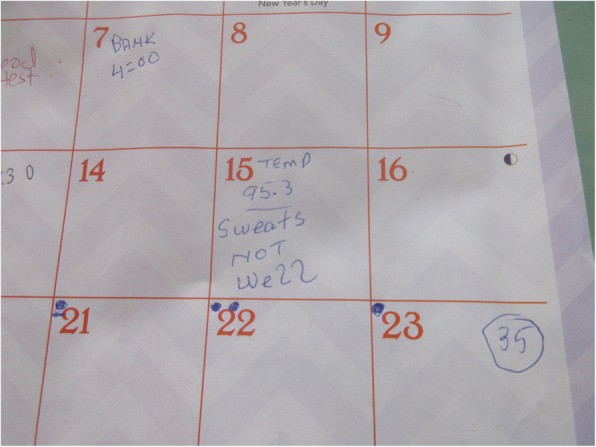 New Year's Day
7 BANK
4=00
8
9
test
:30
14
15 TEMP
95.3
Sweats
NOT
We22
16
21
22
23
35